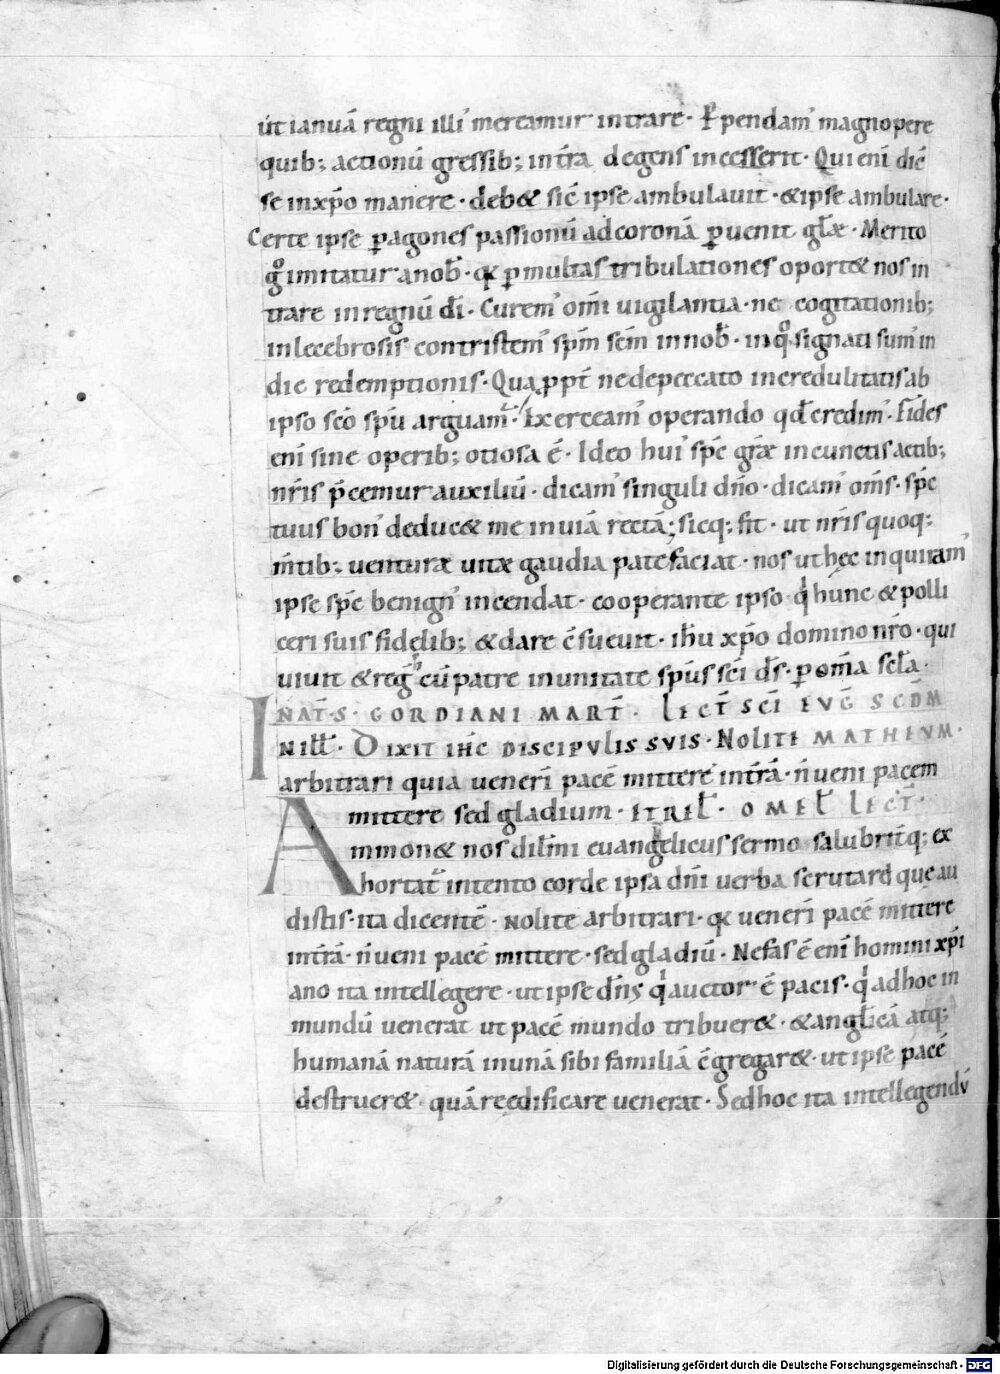 ut ianuā regni illi᾽ mereamur intrare · P̄pendam᾽ magnopere
quib; actionū gressib; int̄ra degens incesserit · Qui enī dic̄
se in xp̄o manere · deb& sic̄ ipse ambulauit · & ipse ambulare ·
Certe ipse p̄ agones passionū ad coronā p̄uenit gl̄æ · Merito
g̊ imitatur a nob̄ · q̄ p̄ multas tribulationes oport& nos in
trare in regnū dī · Curem᾽ om̄i uigilantia · ne cogitationib;
inlecebrosis contristem᾽ sp̄m sc̄m in nob̄ · in q̊ signati sum᾽ in
die redemptionis · Qua p̄pt̄ ne de peccato incredulitatis ab
ipso sc̄o sp̄u arguam᾽ · Exerceam᾽ operando qd̄ credim᾽ · Fides
enī sine operib; otiosa ē · Ideo hui᾽ sp̄c gr̄æ in cunctis actib;
nr̄is p̄cemur auxiliū · dicam᾽ singuli dn̄o · dicam᾽ om̄s · sp̄c
tuus bon᾽ deduc& me in uiā rectā; sicq; fit · ut nr̄is quoq;
m̄tib; uenturæ uitæ gaudia patefaciat · nos ut hec inquiram᾽
ipse sp̄c benign᾽ incendat · cooperante ipso q̄ hunc & polli
ceri suis fidelib; & dare c̄sueuit · ih̄u xp̄o domino nr̄o · qui
uiuit & reg᾽ cū patre in unitate sp̄us sc̄i d̄s · p̄ om̄a sc̄la ·
IN NAT̄ · S · GORDIANI MART̄ · LECT̄ SC̄I EVḠ SECD̄M
N ILL̄ · DIXIT IH̄C DISCIPVLIS SVIS · NOLITE MATHEVM ·
arbitrari quia ueneri᾽ pacē mittere in t̄rā · n̄ ueni pacem
mittere sed gladium · ET REL̄ · OMEL̄ LECT̄ ·
Ammon& nos dil̄mi euangelicus sermo salubrit̄q; ex
hortat̄ intento corde ipsa dn̄i uerba scrutare que au
distis · ita dicentē · Nolite arbitrari · q̄ ueneri᾽ pacē mittere
in t̄rā · n̄ ueni pacē mittere · sed gladiū · Nefas ē enī homini xp̄i
ano ita intellegere · ut ipse dn̄s q̄ auctor ē pacis · q̄ ad hoc in
mundū uenerat ut pacē mundo tribuer& · & anglicā atq;
humanā naturā in unā sibi familiā c̄gregar& · ut ipse pacē
destruer& · quā reedificare uenerat · Sed hoc ita intellegendū
Digitalisierung gefördert durch die Deutsche Forschungsgemeinschaft - DFG